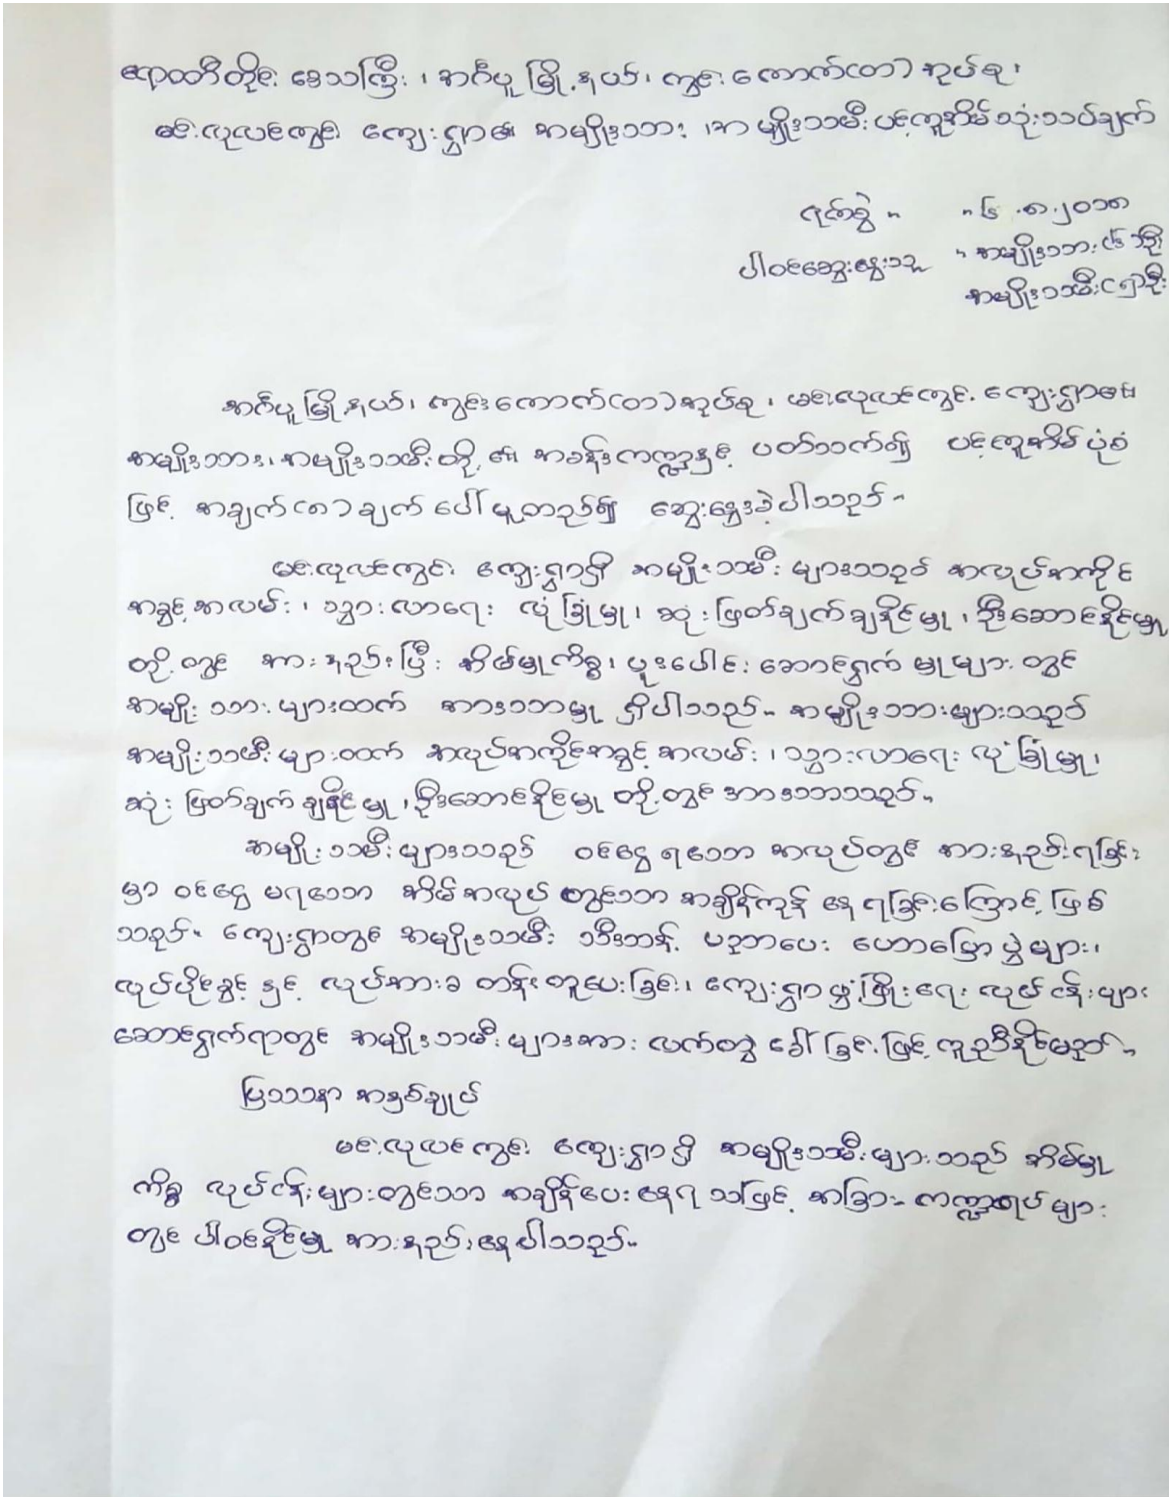 ဧရာဝတီတိုင်း ဒေသကြီး ၊ အင်္ဂပူမြို့နယ်၊ ကွင်းကောက်(တ)အုပ်စု ၊
မင်းလုလင်ကွင်း ကျေးရွာ၏ အမျိုးသား ၊အမျိုးသမီး ပင့်ကူအိမ်သုံးသပ်ချက်
ရက်စွဲ ။ ။ ၆ .၈.၂၀၁၈
ပါဝင်ဆွေးနွေးသူ ။ အမျိုးသား (၆)ဦး
အမျိုးသမီး(၅)ဦး
အင်္ဂပူမြို့နယ်၊ ကွင်းကောက်(တ)အုပ်စု ၊ မင်းလုလင်ကွင်း ကျေးရွာ၏
အမျိုးသား၊အမျိုးသမီးတို့၏ အခန်းကဏ္ဍနှင့် ပတ်သက်၍ ပင့်ကူအိမ်ပုံစံ
ဖြင့် အချက်(၈)ချက် ပေါ်မူတည်၍ ဆွေးနွေးခဲ့ပါသည်။
မင်းလုလင်ကွင်း ကျေးရွာရှိ အမျိုးသမီး များသည် အလုပ်အကိုင်
အခွင့်အလမ်း ၊ သွားလာရေး လုံခြုံမှု၊ ဆုံးဖြတ်ချက်ချနိုင်မှု ၊ ဦးဆောင်နိုင်မှု
တို့တွင် အားနည်းပြီး အိမ်မှုကိစ္စ၊ ပူးပေါင်းဆောင်ရွက်မှုများတွင်
အမျိုးသားများထက် အားသာမှု ရှိပါသည်။ အမျိုးသားများသည်
အမျိုးသမီးများထက် အလုပ်အကိုင်အခွင့်အလမ်း ၊ သွားလာရေး လုံခြုံမှု၊
ဆုံးဖြတ်ချက်ချနိုင်မှု ၊ဦးဆောင်နိုင်မှု တို့တွင် အားသာသည်။
အမျိုးသမီးများသည် ဝင်ငွေရသော အလုပ်တွင် အားနည်းရခြင်း
မှာ ဝင်ငွေ မရသော အိမ်အလုပ် တွင်သာ အချိန်ကုန် နေရခြင်းကြောင့် ဖြစ်
သည်။ ကျေးရွာတွင် အမျိုးသမီး သီးသန့် ပညာပေး ဟောပြောပွဲများ၊
လုပ်ပိုင်ခွင့် နှင့် လုပ်အားခ တန်းတူပေးခြင်း၊ ကျေးရွာဖွံ့ဖြိုးရေး လုပ်ငန်းများ
ဆောင်ရွက်ရာတွင် အမျိုးသမီးများအား လက်တွဲ ခေါ်ခြင်းဖြင့် ကူညီနိုင်မည်။
ပြဿနာ အနှစ်ချုပ်
မင်းလုလင်ကွင်း ကျေးရွာရှိ အမျိုးသမီးများသည် အိမ်မှု
ကိစ္စ လုပ်ငန်းများတွင်သာ အချိန်ပေးနေရ သဖြင့် အခြား ကဏ္ဍရပ်များ
တွင် ပါဝင်နိုင်မှု အားနည်းနေပါသည်။